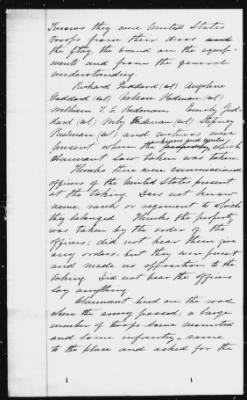 Knows they were United States
troops from their dress and
the flag, the brand on the equip-
ments and from the general
understanding.
Richard Goddard (col), Angeline
Goddard (col), Nelson Redman (col)
William T. S. Redman, Emily God-
dard (col) Redman (col) Stepney
Redman (col) and witness were
present when the property which
claimant saw taken was taken.
Thinks there were commissioned
officers of the United States present
at the taking. Does not know
name, rank, or regiment to which
they belonged. Thinks the property
was taken by the order of the
officers; did not hear them give
any orders, but they were present
and made no opposition to the
taking. Did not hear the officers
say anything.
Claimant lived on the road
when the army passed, a large
number of troops some mounted
and some infantry, came
to the place and asked for the